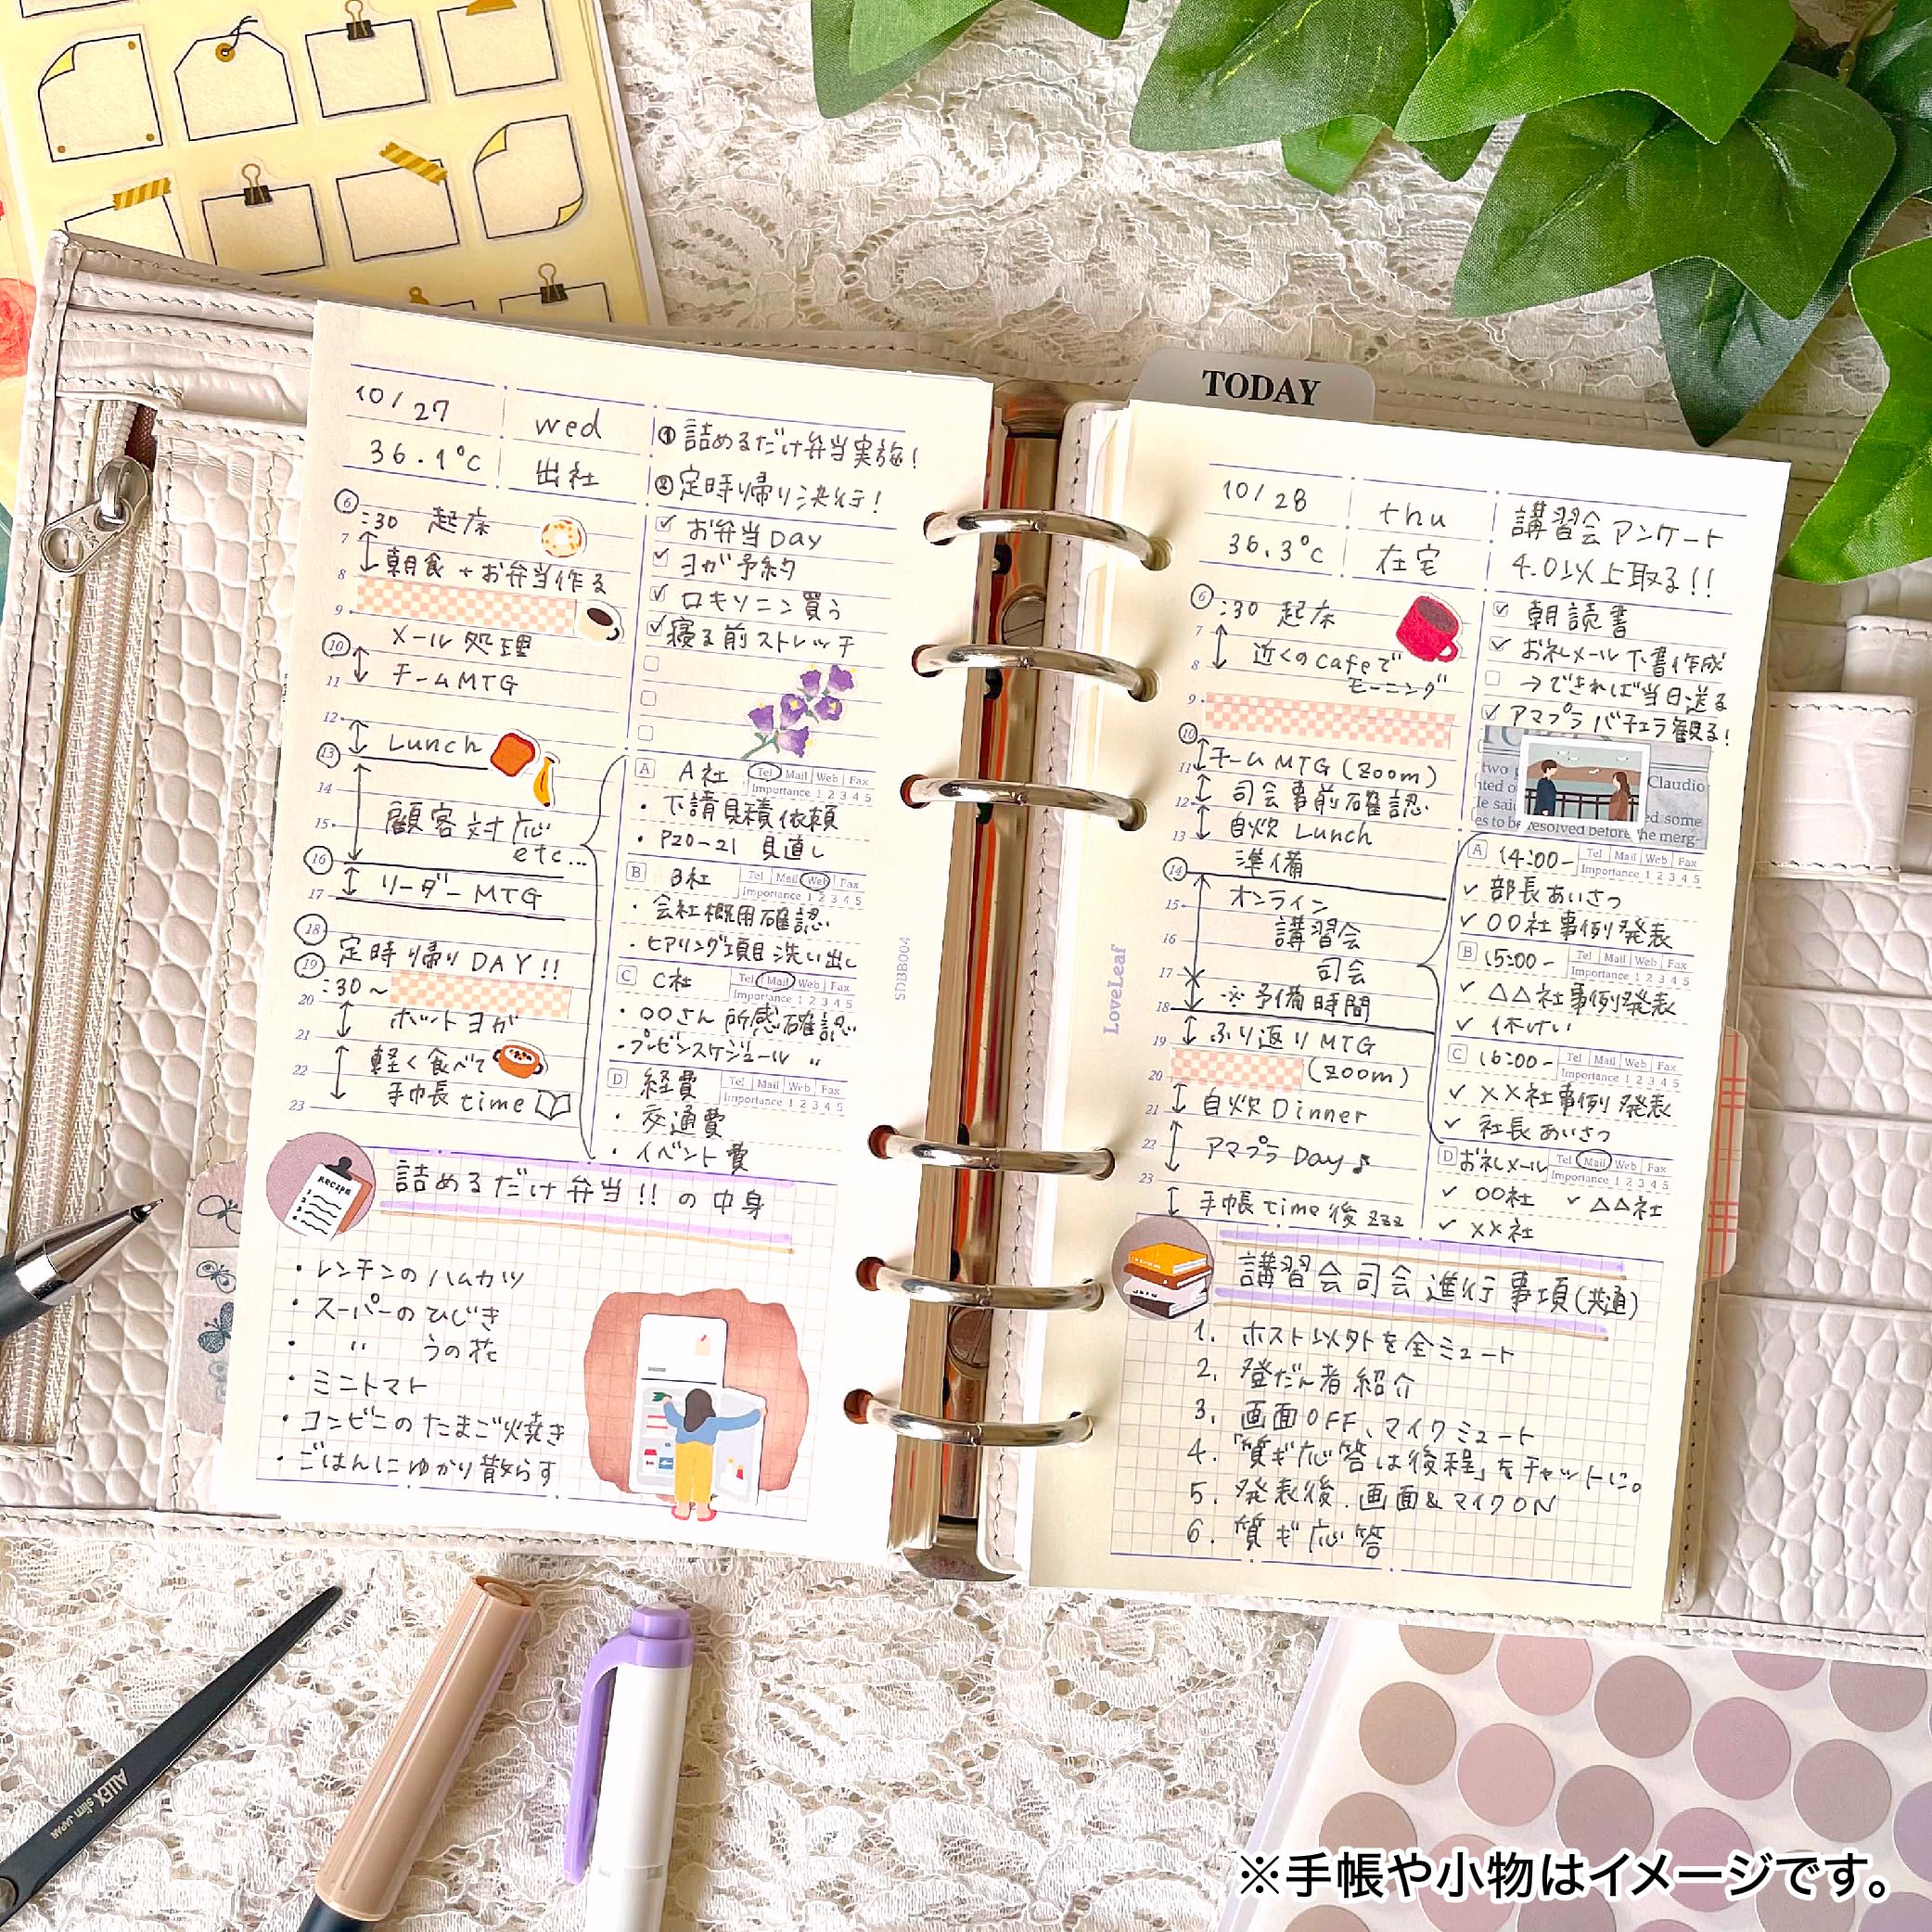 10/27
wed
36.1°C
出社
①詰めるだけ弁当実施!
②定時帰り決行!
6
:30 起床
7
朝食+お弁当作る
8
9
メール処理
10
チームMTG
11
12
Lunch
13
14
顧客対応
15
etc...
16
リーダーMTG
17
18
定時帰りDAY!!
19
:30~
20
ホットヨガ
21
軽く食べて
22
手帳time
23
お弁当Day
ヨガ予約
ロキソニン買う
寝る前ストレッチ
A A社 Tel Mail Web Fax
Importance 1 2 3 4 5
・下請見積依頼
・P20-21 見直し
B B社 Tel Mail Web Fax
Importance 1 2 3 4 5
・会社概用確認
・ヒアリング項目洗い出し
C C社 Tel Mail Web Fax
Importance 1 2 3 4 5
・○○さん所感確認
・プレゼンスケジュール 〃
D 経費 Tel Mail Web Fax
Importance 1 2 3 4 5
・交通費
・イベント費
SDBB004
Recipe
詰めるだけ弁当!!の中身
・レンチンのハムカツ
・スーパーのひじき
・〃 うの花
・ミニトマト
・コンビニのたまご焼き
・ごはんにゆかり散らす
TODAY
10/28
thu
36.3°C
在宅
講習会アンケート
4.0以上取る!!
6
:30 起床
7
近くのcafeで
8
モーニング
9
10
チームMTG(Zoom)
11
司会事前確認
12
自炊 Lunch
13
準備
14
オンライン
15
講習会
16
司会
17
※予備時間
18
ふり返りMTG
19
(Zoom)
20
自炊 Dinner
21
アマプラDay♪
22
23
手帳time後zzz
朝読書
お礼メール下書作成
→できれば当日送る
アマプラバチェラ観る!
Claudio
ed some
es to be resolved before the merg-
A 14:00- Tel Mail Web Fax
Importance 1 2 3 4 5
✓部長あいさつ
✓○○社事例発表
B 15:00- Tel Mail Web Fax
Importance 1 2 3 4 5
✓△△社事例発表
✓休けい
C 16:00- Tel Mail Web Fax
Importance 1 2 3 4 5
✓××社事例発表
✓社長あいさつ
D お礼メール Tel Mail Web Fax
Importance 1 2 3 4 5
✓○○社 ✓△△社
✓××社
LoveLeaf
講習会司会進行事項(共通)
1. ホスト以外を全ミュート
2. 登だん者紹介
3. 画面OFF、マイクミュート
4. 「質ぎ応答は後程」をチャットに。
5. 発表後、画面&マイクON
6. 質ぎ応答
ALLEX slim JAPAN
※手帳や小物はイメージです。